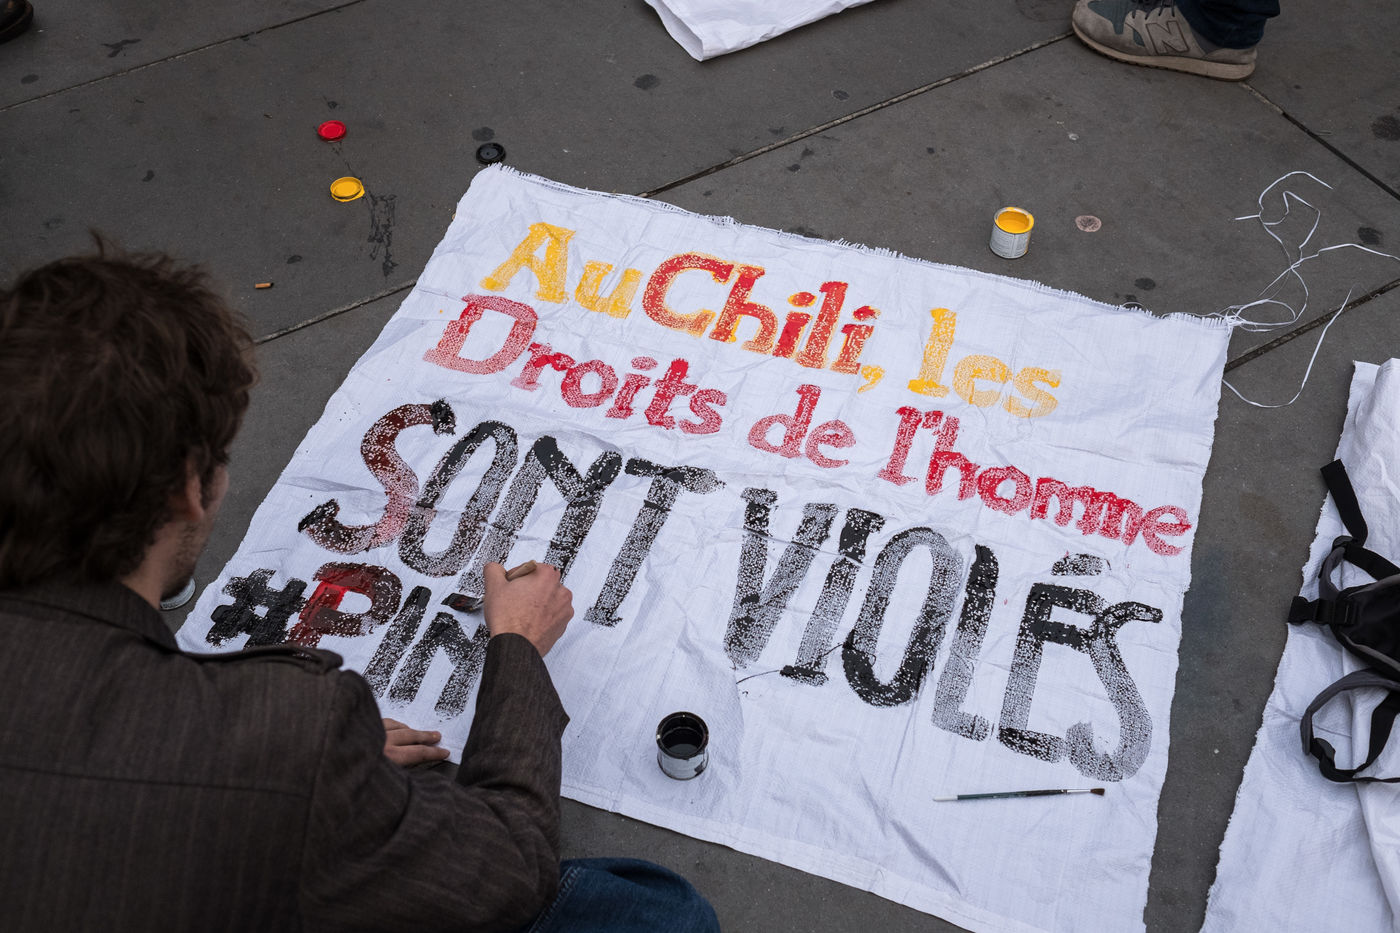 Au Chili, les
Droits de l'homme
SONT VIOLÉS
#PIN
N